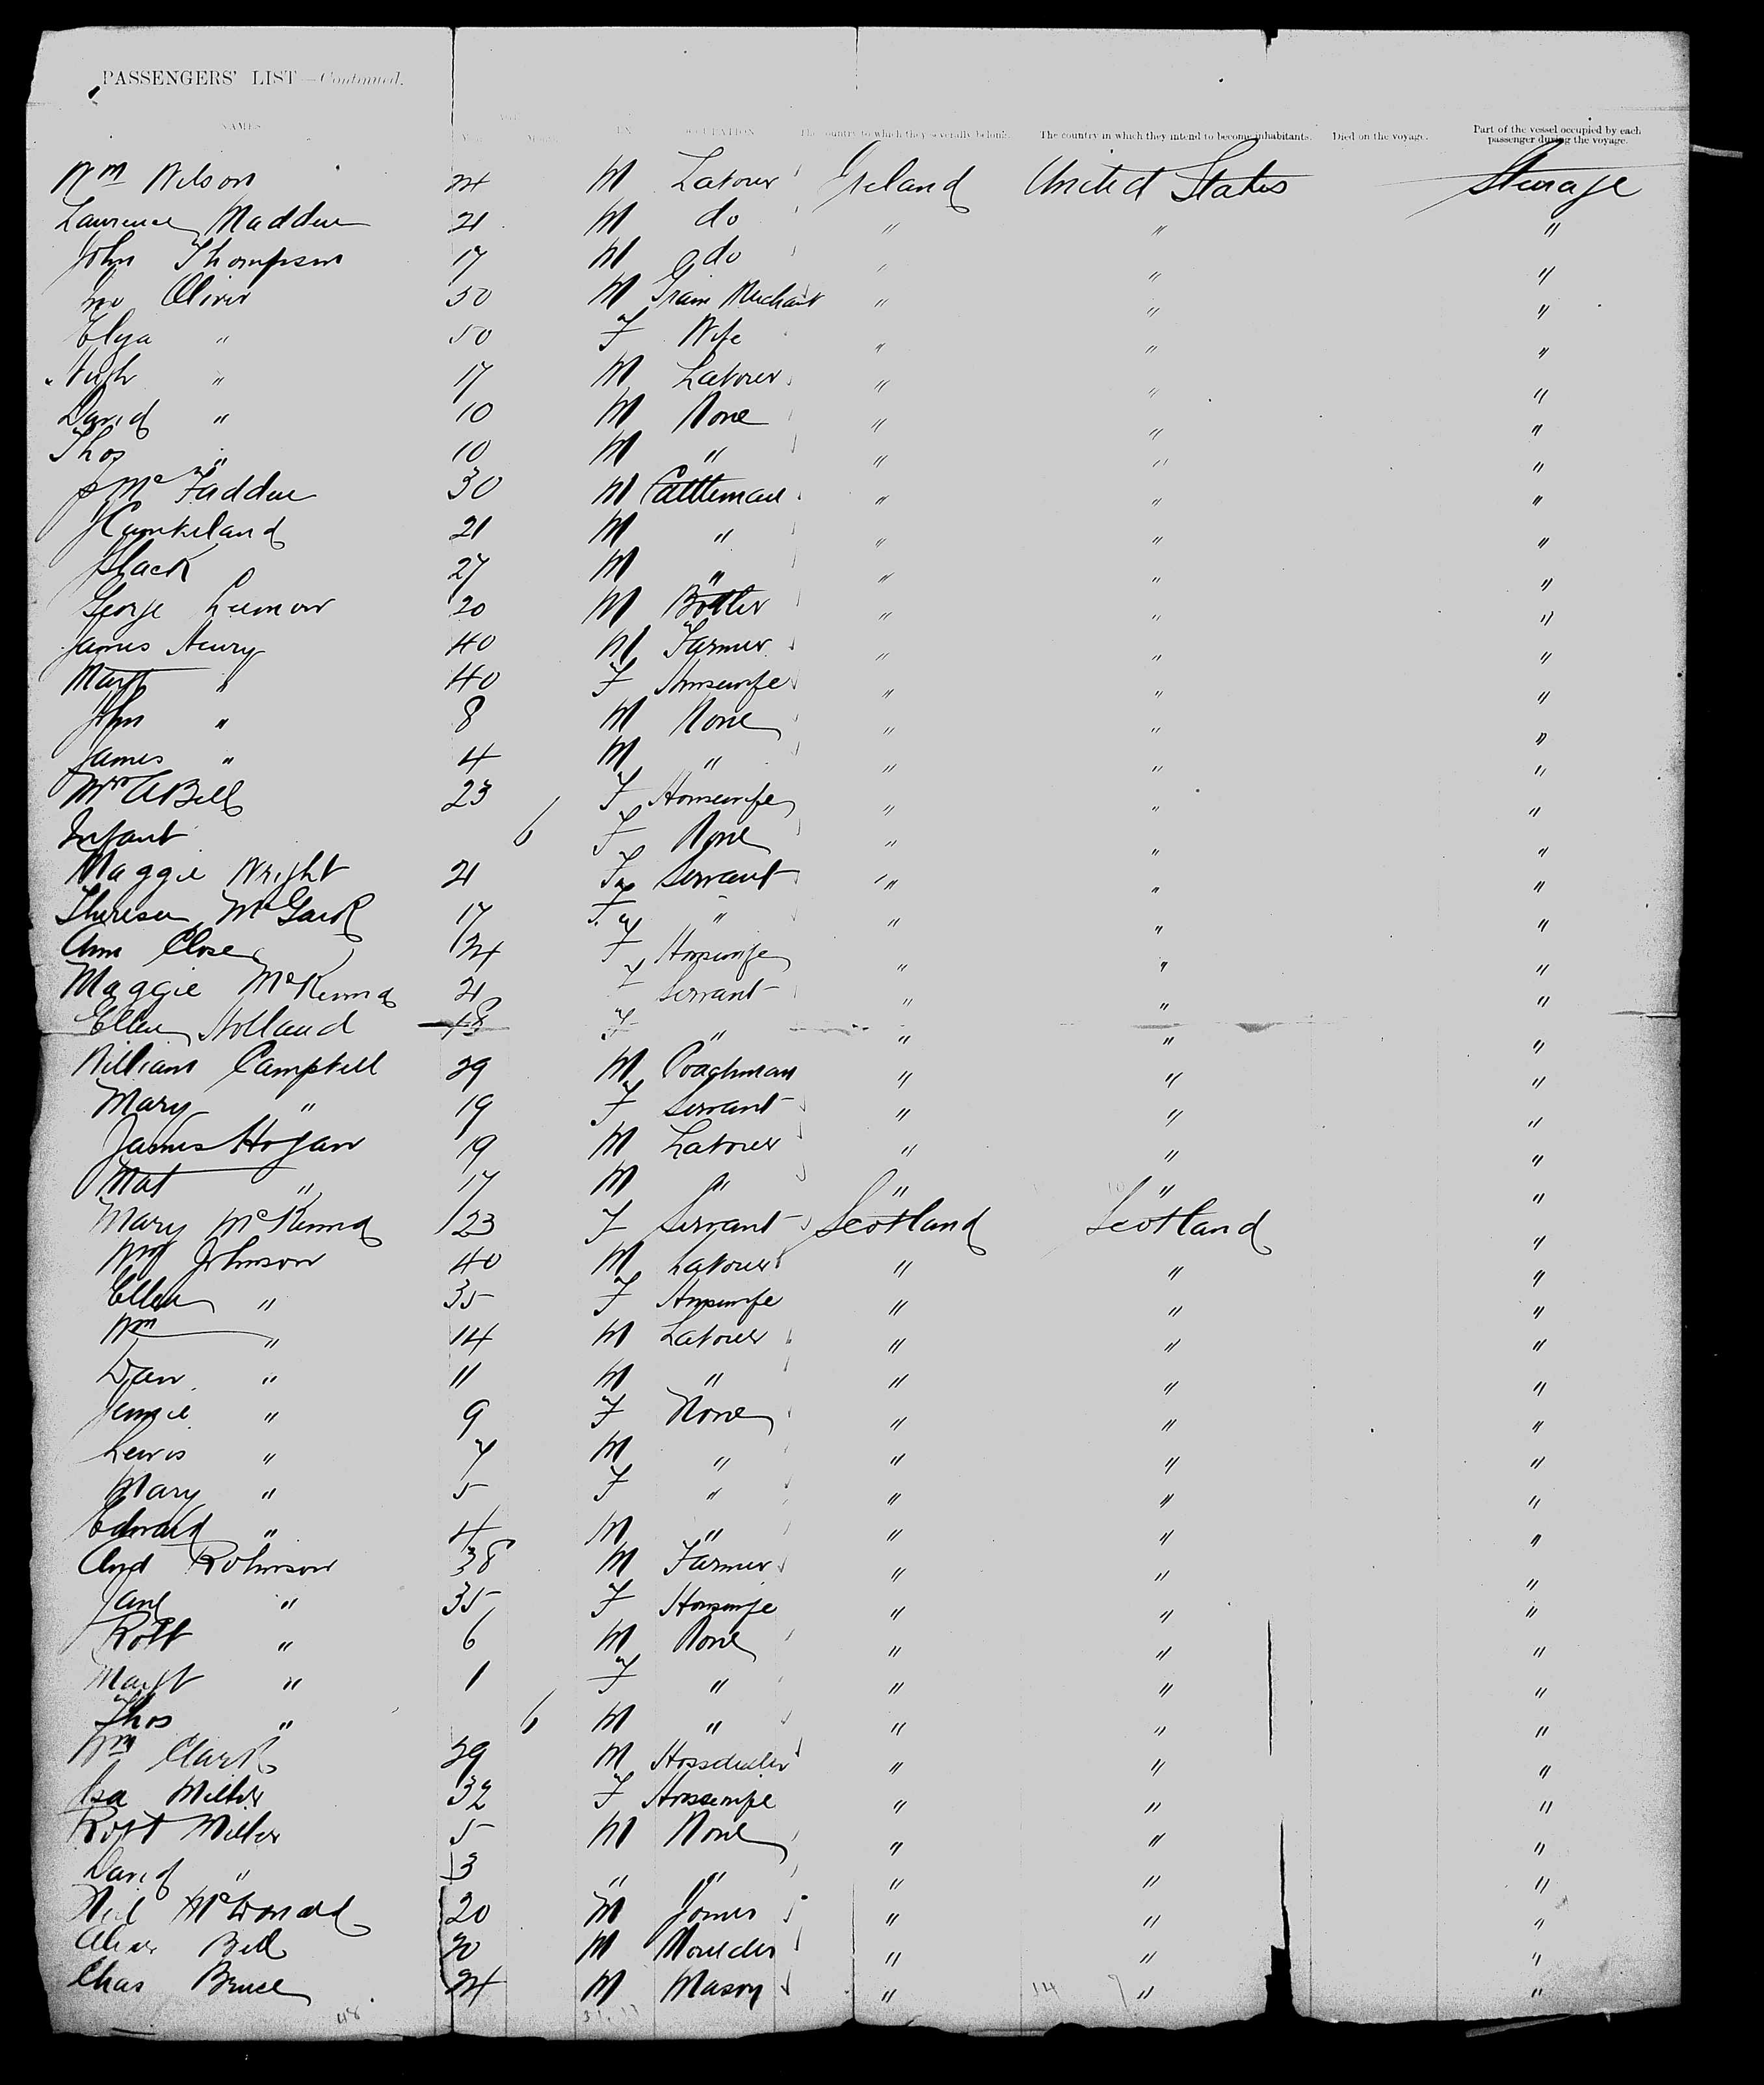 PASSENGERS' LIST—Continued.
NAMES OCCUPATION The country to which they severally belong. The country in which they intend to become inhabitants. Died on the voyage. Part of the vessel occupied by each passenger during the voyage.
Wm Wilson 24 M Labourer Ireland United States Steerage
Lawrence Madden 21 M do " " "
John Thompson 17 M do " " "
Jno Oliver 50 M Grain Merchant " " "
Elga " 50 F Wife " " "
Hugh " 17 M Labourer " " "
David " 10 M None " " "
Thos " 10 M " " " "
McFadden 30 M Cattleman " " "
21 M " " " "
Black 27 M " " " "
George 20 M Bottler " " "
James Henry 40 M Farmer " " "
Margt " 40 F Housewife " " "
John " 8 M None " " "
James " 4 M " " " "
Mrs A Bell 23 F Housewife " " "
Infant 6 F None " " "
Maggie Wright 21 F Servant " " "
Theresa 17 F " " " "
Ann Close 24 F Housewife " " "
Maggie McKenna 21 F Servant " " "
Ellen Holland 18 F " " " "
William Campbell 29 M Coachman " " "
Mary " 19 F Servant " " "
James Hogan 19 M Labourer " " "
Mat " 17 M " " " "
Mary McKenna 23 F Servant Scotland Scotland "
Wm Johnson 40 M Labourer " " "
Ellen " 35 F Housewife " " "
Wm " 14 M Labourer " " "
Dan " 11 M " " " "
Jennie " 9 F None " " "
Lewis " 7 M " " " "
Mary " 5 F " " " "
Edward " 4 M " " " "
And Robinson 38 M Farmer " " "
Jane " 35 F Housewife " " "
Robt " 6 M None " " "
Margt " 1 F " " " "
Thos " 6 M " " " "
Wm Clark 29 M " " "
Isa Miller 32 F Housewife " " "
Robt Miller 5 M None " " "
David " 3 " " " " "
Neil McDonald 20 M Joiner " " "
Bell 20 M Moulder " " "
Chas Bruce 24 M Mason " " "
48